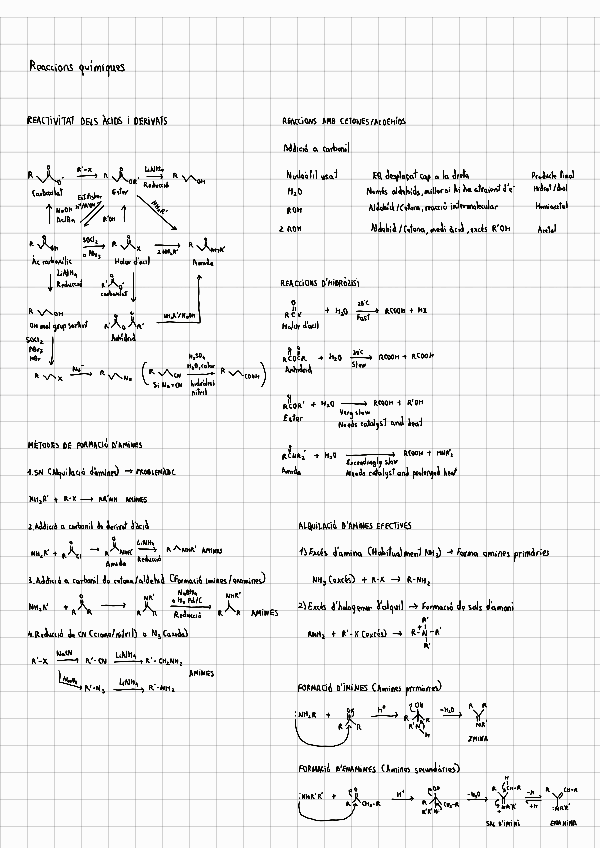 Reaccions químiques
REACTIVITAT DELS ÀCIDS I DERIVATS
R O⁻ R'-X R OR' LiAlH₄ R OH
Reducció
Carboxilat Èster
NaOH R'OH
Àc carboxílic SOCl₂ Halur d'àcid 2 NH₂R' Amida
o PBr₃
LiAlH₄
Reducció carboxilat
R OH
OH mal grup sortint Anhídrid NH₂R'/NaOH
SOCl₂
PBr₃
HBr
R X Nu⁻ R Nu ( R CN H₂SO₄ R COOH )
H₂O, calor
Si Nu = CN hidròlisi
nitril
MÈTODES DE FORMACIÓ D'AMINES
1. SN (Alquilació d'amines) → PROBLEMÀTIC
NH₂R' + R-X → RR'NH AMINES
2. Addició a carbonil de derivat d'àcid
NH₂R' + R Cl → R NHR' LiAlH₄ R NHR' AMINES
Amida Reducció
3. Addició a carbonil de cetona/aldehid (Formació imines/enamines)
NH₂R' + R R → NR' R R NaBH₄ NHR' R R AMINES
o H₂ Pd/C
Reducció
4. Reducció de CN (ciano/nitril) o N₃ (azida)
R'-X NaCN R'-CN LiAlH₄ R'-CH₂NH₂
AMINES
NaN₃ R'-N₃ LiAlH₄ R'-NH₂
REACCIONS AMB CETONES/ALDEHIDS
Addició a carbonil
Nucleòfil usat EQ desplaçat cap a la dreta Producte final
H₂O Només aldehids, millor si hi ha atraient d'e⁻ Hidrat/diol
ROH Aldehid/Cetona, reacció intermolecular Hemiacetal
2 ROH Aldehid/Cetona, medi àcid, excés R'OH Acetal
REACCIONS D'HIDRÒLISI
O
RCX + H₂O 25°C RCOOH + HX
Fast
Halur d'àcid
O O
RCOCR + H₂O 25°C RCOOH + RCOOH
Slow
Anhídrid
O
RCOR' + H₂O → RCOOH + R'OH
Very slow
Èster Needs catalyst and heat
O
RCNR'₂ + H₂O → RCOOH + HNR'₂
Exceedingly slow
Amida Needs catalyst and prolonged heat
ALQUILACIÓ D'AMINES EFECTIVES
1) Excés d'amina (Habitualment NH₃) → Forma amines primàries
NH₃ (excés) + R-X → R-NH₂
2) Excés d'halogenur d'alquil → Formació de sals d'amoni
R'
RNH₂ + R'-X (excés) → R-N⁺-R'
R'
FORMACIÓ D'IMINES (Amines primàries)
:NH₂R + R R H⁺ -H₂O R R
NR'
IMINA
FORMACIÓ D'ENAMINES (Amines secundàries)
:NHR'R' + R CH₂-R H⁺ -H₂O -H
+H
SAL D'IMINI ENAMINA